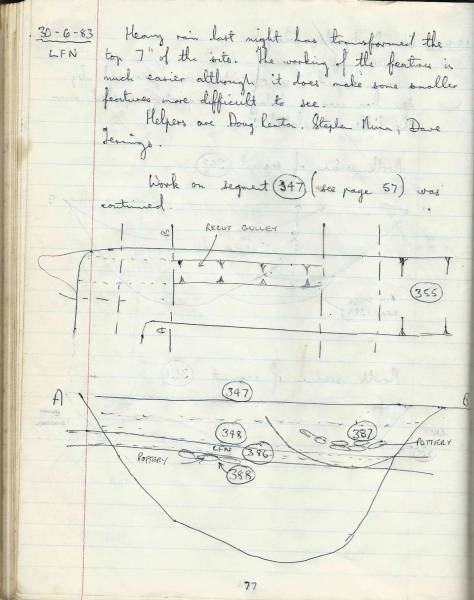 30-6-83
LFN
Heavy rain last night has transformed the
top 7" of the site. The working of the features is
much easier although it does make some smaller
features more difficult to see.
Helpers are Doug Renton, Stephen Nunn, Dave
Jennings.
Work on segment 347 (see page 57) was
continued.
B
RECUT GULLEY
355
A
A
347
B
348
387
LFN
386
POTTERY
POTTERY
388
77